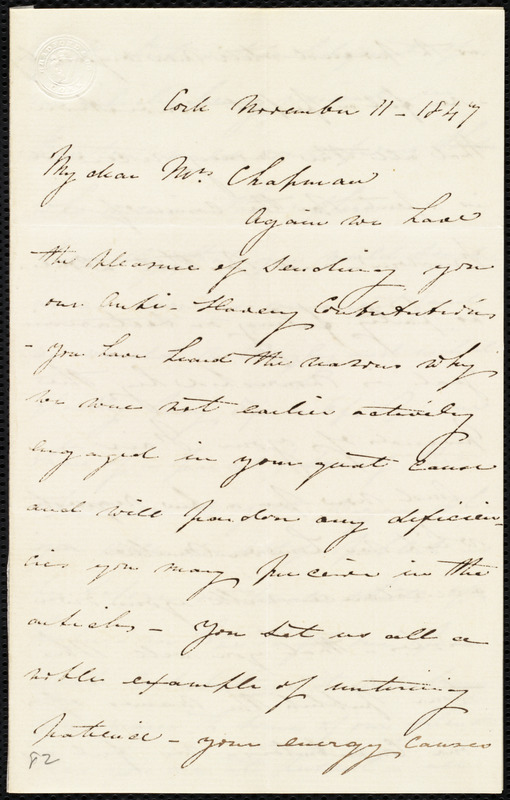 Cork November 11 - 1847
My dear Mrs. Chapman
Again we have
the pleasure of sending you
our Anti-Slavery Contributions
- You have heard the reasons why
we were not earlier actively
engaged in your great cause
and will pardon any deficien-
cies you may perceive in the
articles - You set us all a
noble example of untiring
patience - your energy causes
82